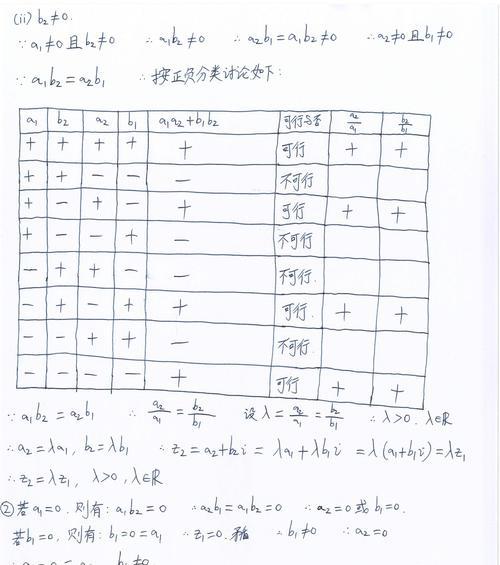 (ii) b₂≠0.
∵a₁≠0且b₂≠0 ∴a₁b₂≠0 ∴a₂b₁=a₁b₂≠0 ∴a₂≠0且b₁≠0
∵a₁b₂=a₂b₁ ∴按正负分类讨论如下:
a₁ b₂ a₂ b₁ a₁a₂+b₁b₂ 可行与否 a₂/a₁ b₂/b₁
+ + + + + 可行 + +
+ + − − − 不可行
+ − + − + 可行 + +
+ − − + − 不可行
− + + − − 不可行.
− + − + + 可行. + +
− − + + − 不可行.
− − − − + 可行 + +
∵a₁b₂=a₂b₁ ∴a₂/a₁=b₂/b₁ 设λ=a₂/a₁=b₂/b₁ ∴λ>0, λ∈R
∴a₂=λa₁, b₂=λb₁ ∴z₂=a₂+b₂i=λa₁+λb₁i=λ(a₁+b₁i)=λz₁
∴z₂=λz₁, λ>0, λ∈R
②若a₁=0, 则有: a₁b₂=0 ∴a₂b₁=a₁b₂=0 ∴a₂=0或b₁=0.
若b₁=0, 则有: b₁=0=a₁ ∴z₁=0. ∴b₁≠0 ∴a₂=0